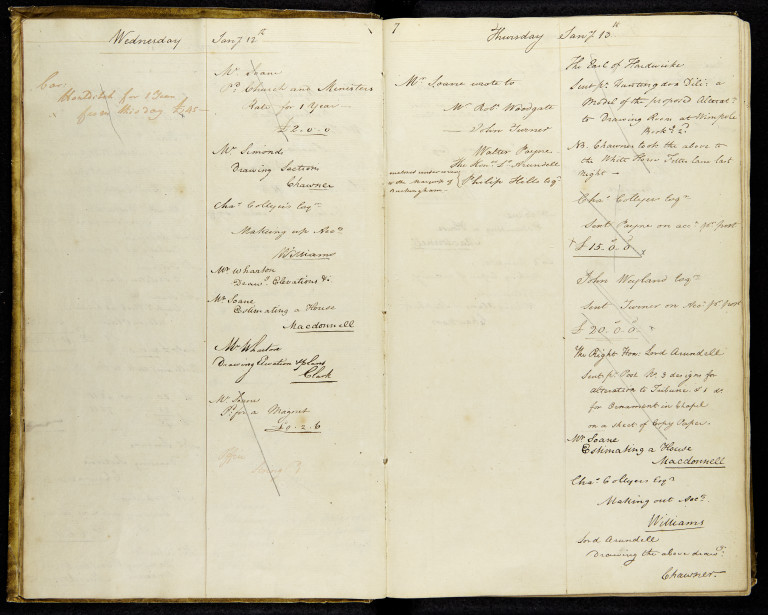 Wednesday Jan.y 12th
Car
Mr. Soane
Pd. Church and Ministers
Rates for 1 Year —
£2.0.0
Mr. Simonds
Drawing Section
Chawner
Chas. Collyer Esqre.
Making up Acco.
Williams
Mr. Wharton
Drawg. Elevations &c
Mr. Soane
Estimating a House
Macdonnell
Mr. Wharton
Drawing Elevation & plans
Clark
Mr. Soane
Pd. for a
£0.2.6
7
Thursday Jan.y 13th
Mr. Soane wrote to
Mr. Robt. Woodgate
— John Turner
Walter Payne
The Honl. Ld. Arundell
Philip Hills Esqr.
Buckingham —
The Earl of Hardwicke
a
Model of the proposed Alterats.
to Drawing Room at Wimpole
NB. Chawner took the above to
the White Horse Fetter lane last
night —
Chas. Collyer Esqre.
Sent Payne on acct. pr. post
£15.0.0
John Wayland Esqre.
Sent Turner on Acct. pr. post
£20.0.0
The Right Hon. Lord Arundell
Sent pr. Post No. 3 designs for
alteration to Tribune & 1 do.
for Ornament in Chapel
on a sheet of Copy Paper.
Mr. Soane
Estimating a House
Macdonnell
Chas. Collyers Esqr.
Making out Acco.
Williams
Lord Arundell
Drawing the above draws.
Chawner.